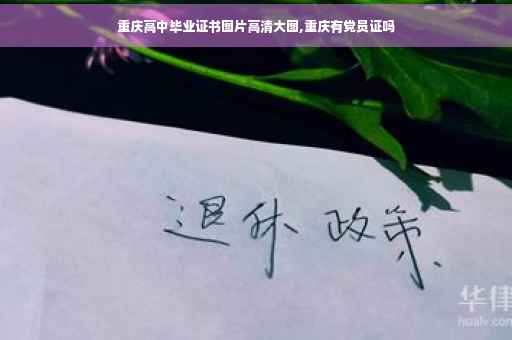 重庆高中毕业证书图片高清大图,重庆有党员证吗
退休 政策
华律
hualv.com